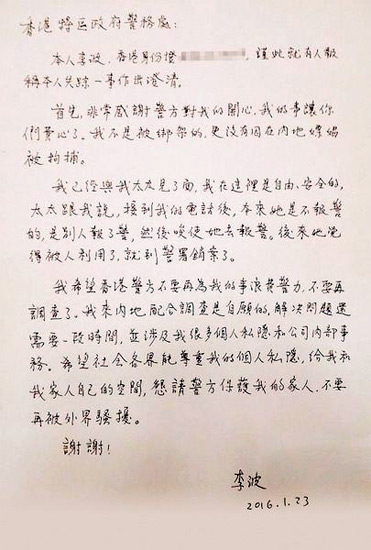 香港特区政府警務處：
本人李波，香港身份證，謹此就有人報
稱本人失踪一事作出澄清。
首先，非常感謝警方對我的關心，我的事讓你
們費心了。我不是被绑架的，更没有因在内地嫖娼
被拘捕。
我已經與我太太見了面，我在這裡是自由、安全的，
太太跟我説，接到我的電話後，本來她是不報警
的，是别人報了警，然後唆使她去報警。後來她覺
得被人利用了，就到警署銷案了。
我希望香港警方不要再為我的事浪費警力，不要再
調查了。我來内地配合調查是自願的，解決問題還
需要一段時間，並涉及我很多個人私隱和公司内部事
務。希望社會各界能尊重我的個人私隱，給我和
我家人自己的空間，懇請警方保護我的家人，不要
再被外界騷擾。
謝謝！
李波
2016.1.23